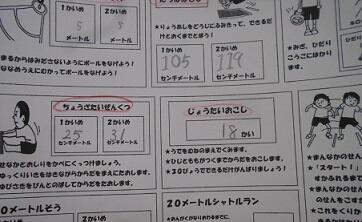 1かいめ 2かいめ
5 5
メートル メートル
まるからはみださないようにボールをなげよう!
ななめうえにむかってボールをなげよう!
りょうあしをどうじにふみきって、できるだけとおくまでとぼう!
1かいめ 2かいめ
105 119
センチメートル センチメートル
みぎ、ひだり
こうごにはかります。
ちょうざたいぜんくつ
1かいめ 2かいめ
25 31
センチメートル センチメートル
せなかとおしりをかべにくっつけましょう。
ゆっくりいきをはきながらからだをまえにたおします。
ゆびさきをぴんとのばしてからだをたおします。
じょうたいおこし
18 かい
うでをむねのまえでくみます。
ひじとももがつくまでからだをおこします。
30びょうでできるだけがんばりましょう!
まんなかの
「スタート!」
すかるまでに
まんなかの
のせんをこ
20メートルシャトルラン